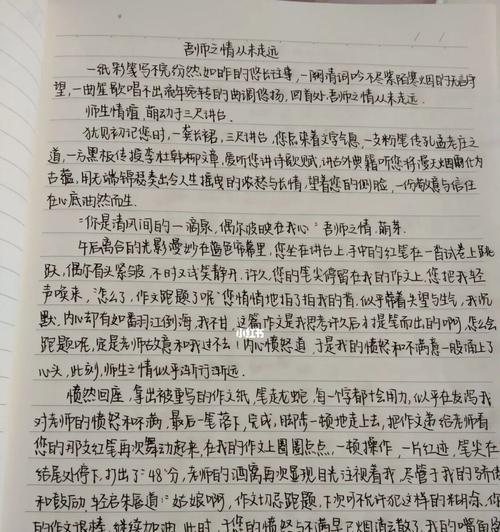 吾师之情从未走远
一纸彩笺写不完纷然如昨的悠长往事，一阕清词吟不尽紫陌爆烟的天启守
望，一曲笙歌唱不出流年宛转的曲调悠扬，回首处吾师之情从未走远.
师生情痕，萌动于三尺讲台.
犹见初记您时，一袭长裙，三尺讲台，您总来着文字气息，一支粉笔传孔孟老庄之
道，一方黑板传授李杜韩柳文章，爱听您讲诗歌赋，讲台外典籍听您将漫天烟霞化为
古蕴，用无端锦瑟奏出令人摇曳的浓愁与长情，望着您的侧脸，一份敬意与信任
在心底油然而生.
"你是清风间的一滴泉，偶尔波映在我心"吾师之情.萌芽.
午后离合的光影漫妙在蓝色帘幕里，您坐在讲台上，手中的红笔在一沓试卷上跳
跃，偶尔眉头紧皱，不时又试笑静开.许久，您的笔尖停留在我的作文上，您把我轻
声唤来，"怎么了，作文跑题了呢"您悄悄地拍了拍我的肩，似乎带着失望与生气，我沉
默，内心却有如翻江倒海，我不甘，这篇作文是我思考许久后才提笔而出的啊，怎么会
跑题呢，定是老师故意和我过不去!内心愤怒道，于是我的愤怒和不满意一股涌上了
心头，此刻，师生之情似乎渐行渐远.
愤然回座，拿出被重写的作文纸，笔走龙蛇，每一个字都十会用力，似乎在发泻我
对老师的愤怒和不满，最后一笔落下，完成，脚步一顿地走上去，把作文递给老师看
您的那支红笔再次舞动起来，在我的作文上圈圈点点，一顿操作，一片红迹，笔尖在
结尾处停下，打出了"48"分，老师的洒离再次显现目光注视着我，尽管于我的骄傲
和鼓励，轻启朱唇道："姑娘啊，作文切忌跑题，下次可不允许犯这样的粗心，你
的作文很棒，继续加油.此时，于您的愤怒与不满早已烟消云散了，我的嘴角
小红书